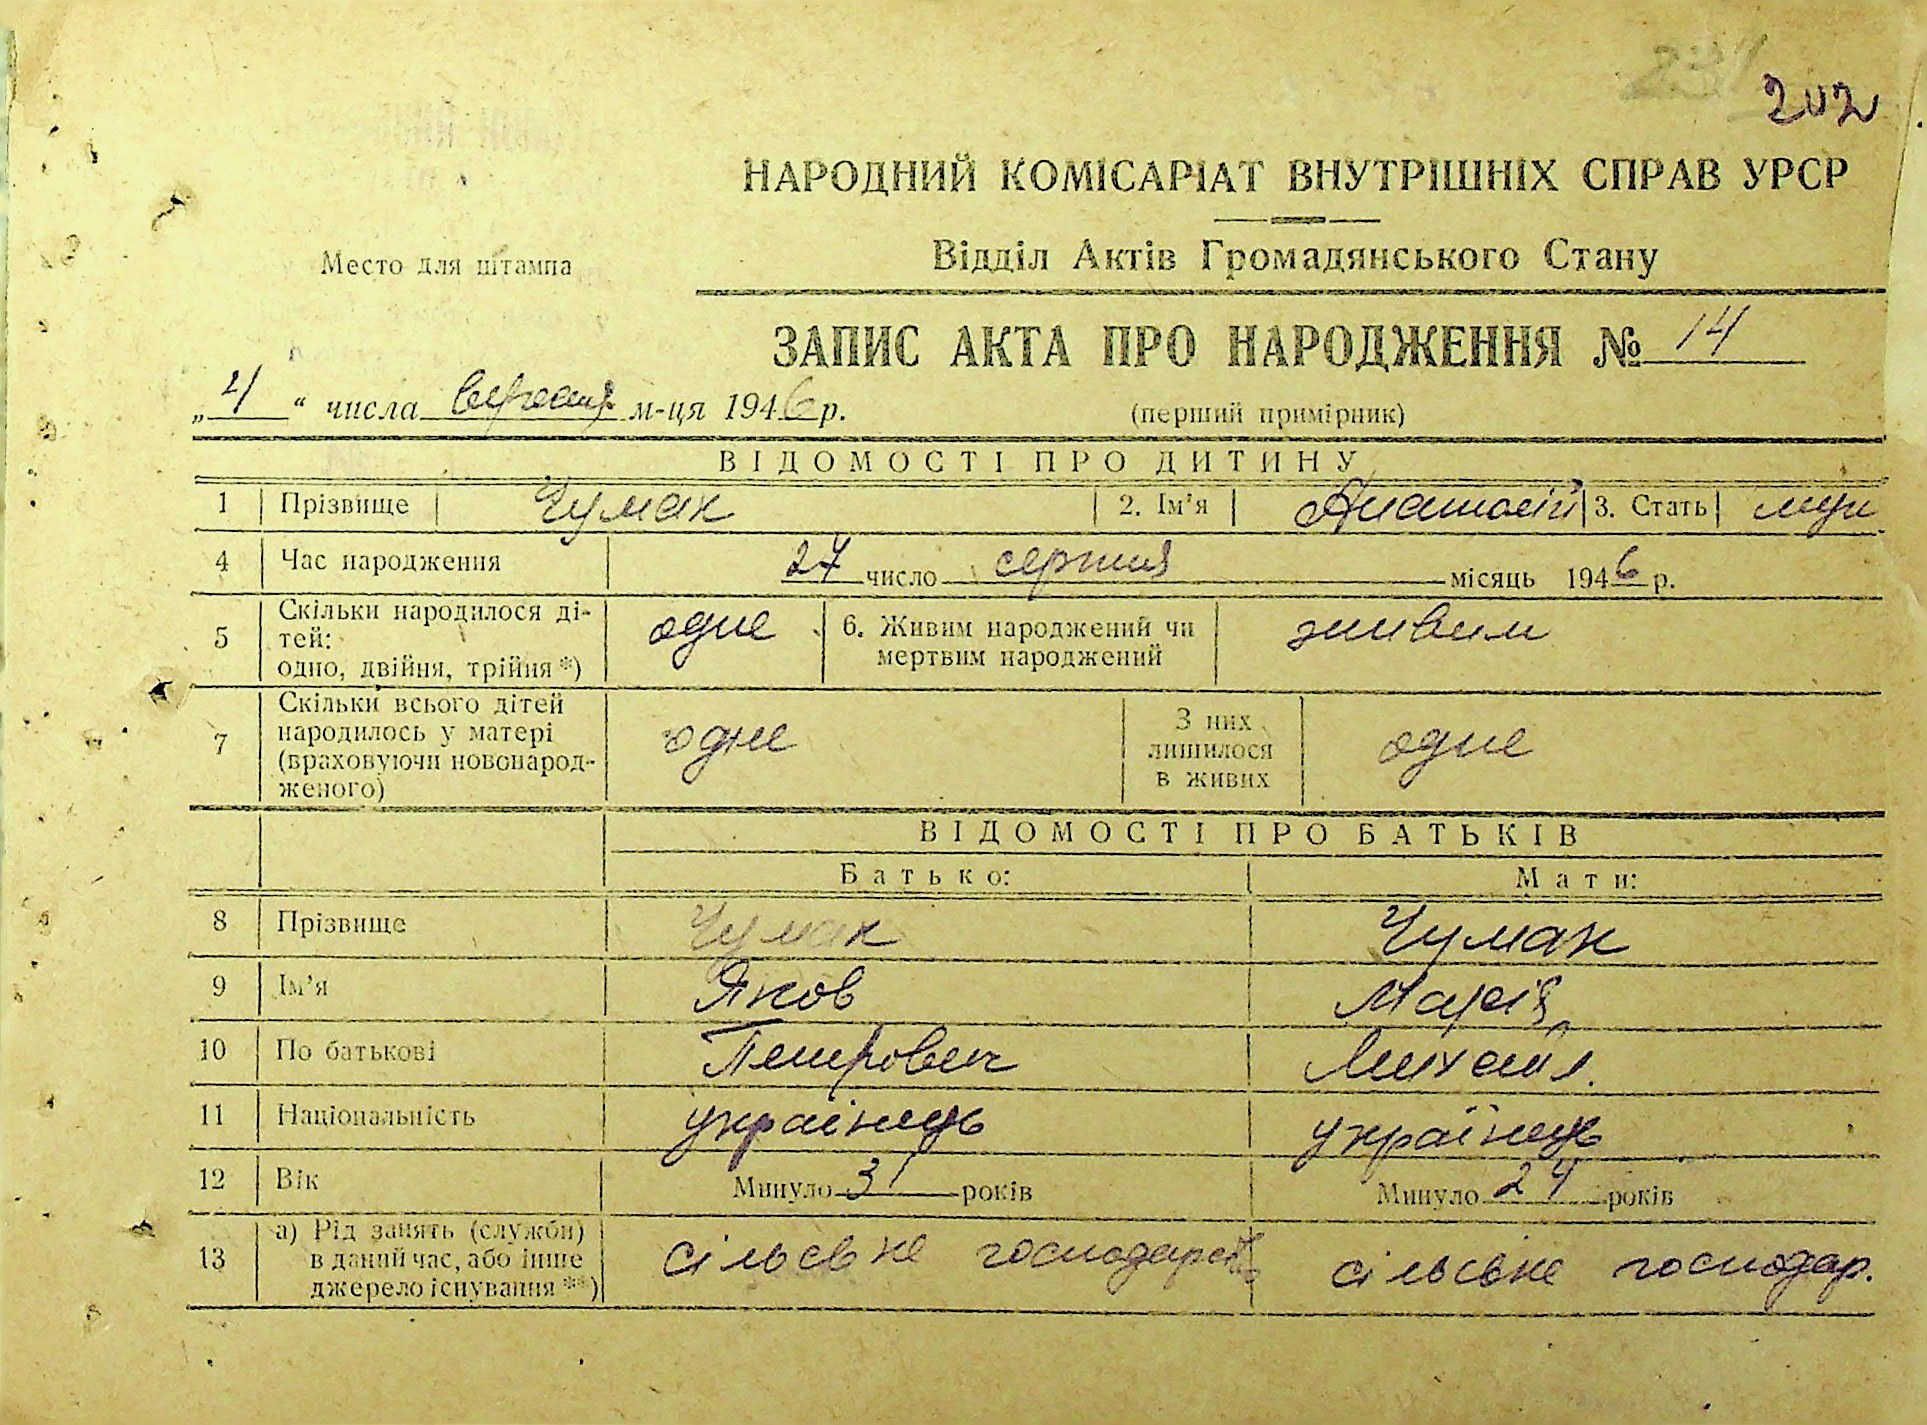 202
НАРОДНИЙ КОМІСАРІАТ ВНУТРІШНІХ СПРАВ УРСР
Место для штампа
Відділ Актів Громадянського Стану
ЗАПИС АКТА ПРО НАРОДЖЕННЯ № 14
„4“ числа вересня м-ця 1946 р.
(перший примірник)
ВІДОМОСТІ ПРО ДИТИНУ
1 Прізвище Чумак 2. Ім’я Анатолій 3. Стать муж
4 Час народження 27 число серпня місяць 1946 р.
5 Скільки народилося ді-
тей:
одно, двійня, трійня *) одне 6. Живим народжений чи
мертвим народжений живим
7 Скільки всього дітей
народилось у матері
(враховуючи новонарод-
женого) одне З них
лишилося
в живих одне
ВІДОМОСТІ ПРО БАТЬКІВ
Батько: Мати:
8 Прізвище Чумак Чумак
9 Ім’я Яков Марія
10 По батькові Петрович Михайл.
11 Національність українець українець
12 Вік Минуло 31 років Минуло 24 років
13 а) Рід занять (служби)
в даний час, або інше
джерело існування **) сільське господарст сільське господар.